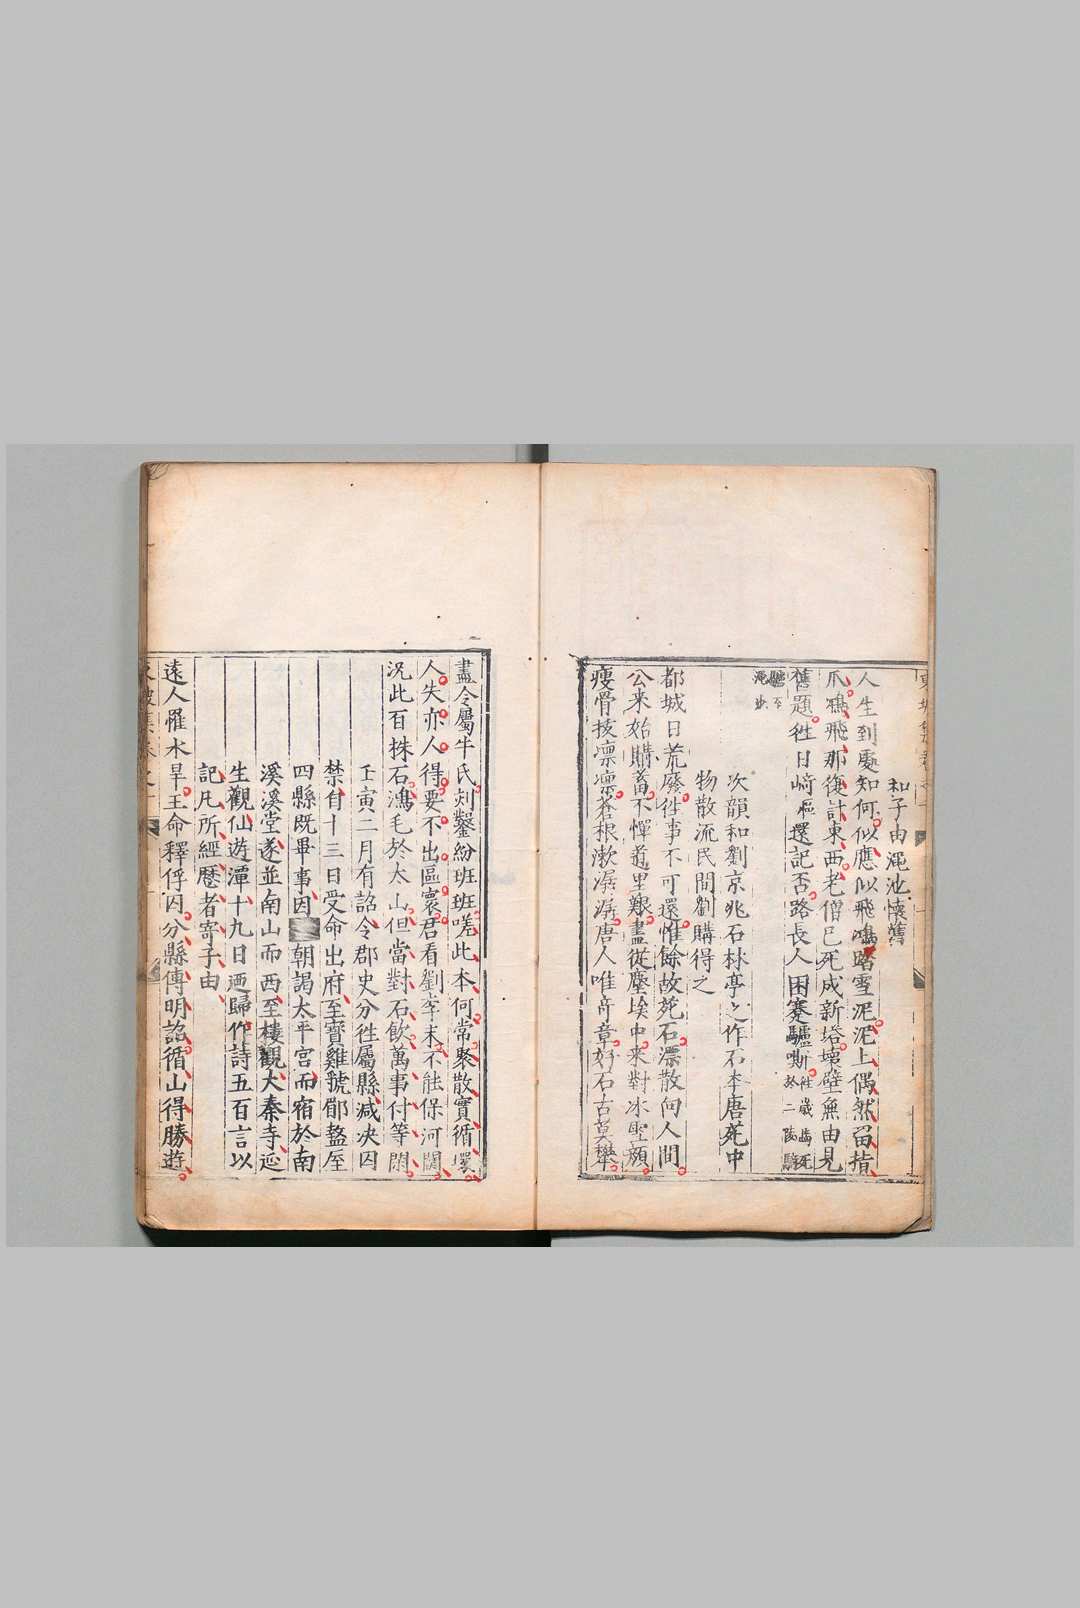 和子由澠池懷舊
人生到處知何似應似飛鴻踏雪泥泥上偶然畱指
爪鴻飛那復計東西老僧已死成新塔壞壁無由見
舊題徃日崎嶇還記否路長人困蹇驢嘶徃歲馬死於二陵騎
驢至澠池
次韻和劉京兆石林亭之作石本唐苑中
物散流民間劉購得之
都城日荒廢徃事不可還惟餘故苑石漂散向人間
公来始購蓄不憚道里艱盡從塵埃中来對冰雪顔
瘦骨拔凛凛蒼根漱潺潺唐人唯奇章好石古莫攀
盡令屬牛氏刻鑿紛班班嗟此本何常聚散實循環
人失亦人得要不出區寰君看劉李末不能保河關
况此百株石鴻毛於太山但當對石飲萬事付等閑
壬寅二月有詔令郡吏分徃屬縣减决囚
禁自十三日受命出府至寶雞虢郿盩厔
四縣既畢事因朝謁太平宫而宿於南
溪溪堂遂並南山而西至樓觀大秦寺延
生觀仙遊潭十九日廼歸作詩五百言以
記凡所經歷者寄子由
遠人罹水旱王命釋俘囚分縣傳明詔循山得勝遊